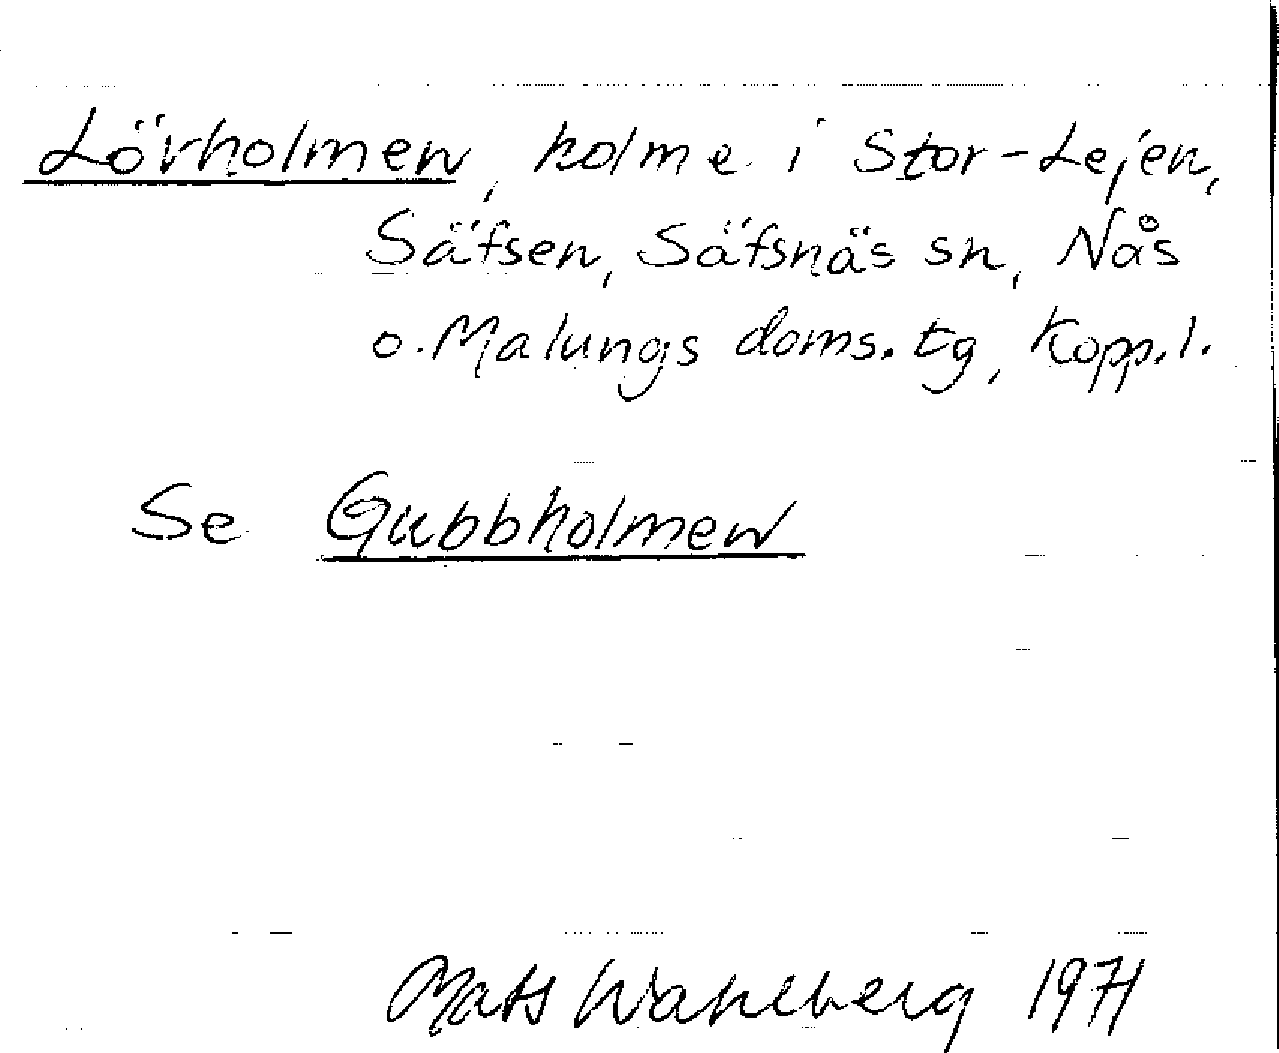 Lövholmen, holme i Stor-Lejen,
Säfsen, Säfsnäs sn, Nås
o. Malungs doms. tg, Kopp. l.
Se Gubbholmen
Mats Wahlberg 1971